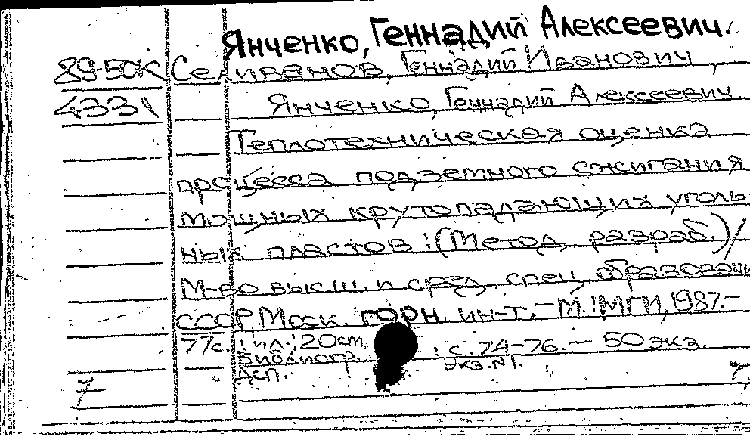 Янченко, Геннадий Алексеевич.
89-50К Селиванов, Геннадий Иванович,
4331 Янченко, Геннадий Алексеевич
Теплотехническая оценка
процесса подземного сжигания
мощных крутопадающих уголь
ных пластов: (Метод. разраб.) /
М-во высш. и сред. спец. образован
СССР, Моск. горн. ин-т. - М.: МГИ, 1987.-
77с.: ил.; 20см. - 50 экз.
Библиогр.: с.74-76.
Деп. экз.№1.
7 7